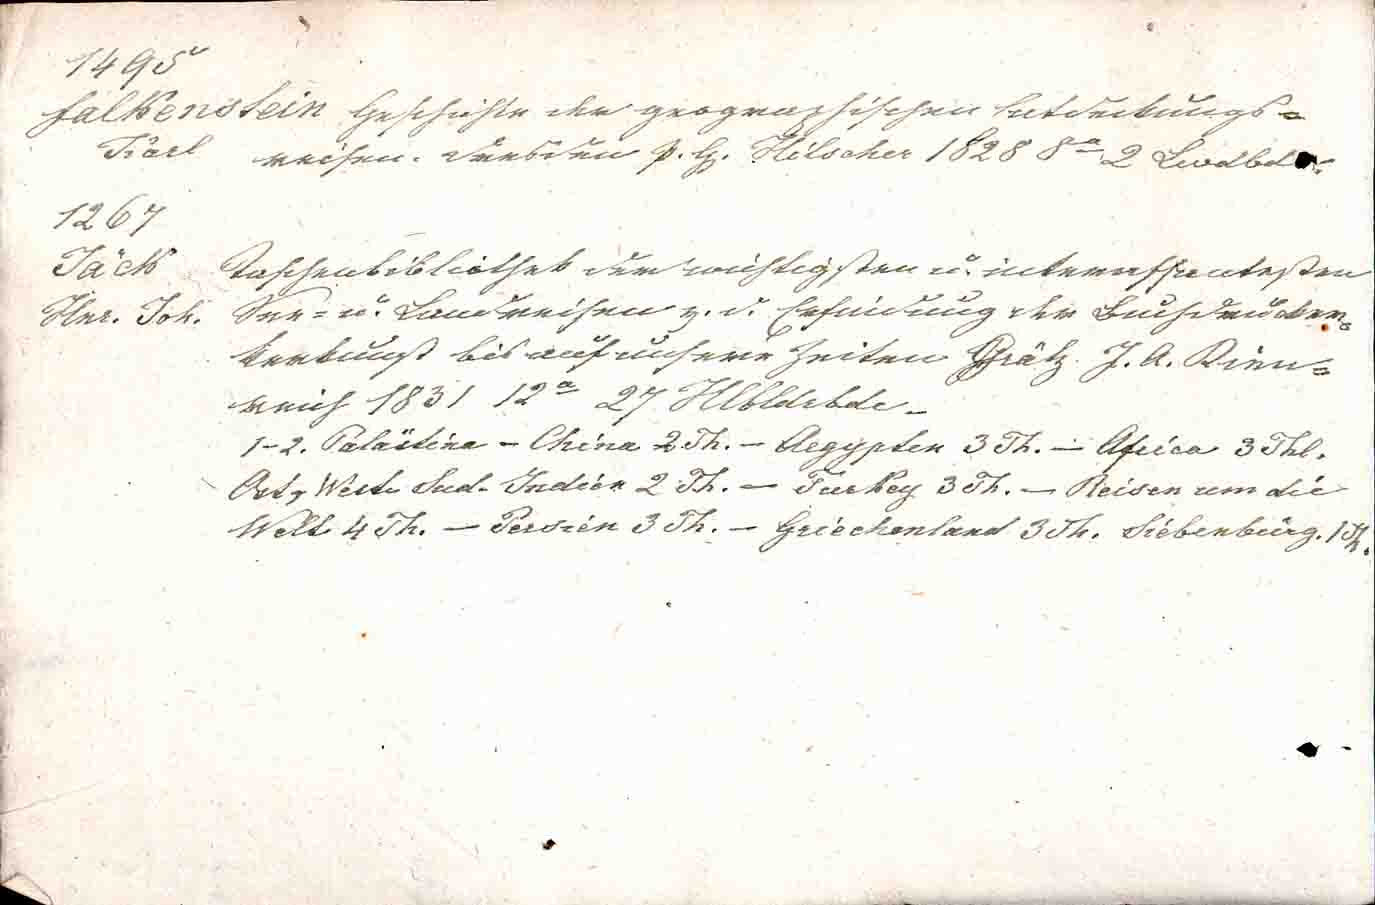 1495
Falkenstein Geschichte der geographischen Entdeckungs=
Karl reisen. Dresden P. G. Hilscher 1828 8ª 2 Lwdbde.
1267
Jäck Taschenbibliothek der wichtigsten u. interessantesten
Hnr. Joh. See= u. Landreisen v. d. Erfindung der Buchdrucker=
kunst bis auf unsere Zeiten Grätz J. A. Kien=
reich 1831 12ª 27 Hlbldrbde.
1-2. Palästina - China 2 Th. - Aegypten 3 Th. - Africa 3 Thl.
Ost, West. Sud- Indien 2 Th. - Turkey 3 Th. - Reisen um die
Welt 4 Th. - Persien 3 Th. - Griechenland 3 Th. Siebenbürg. 1 Th.